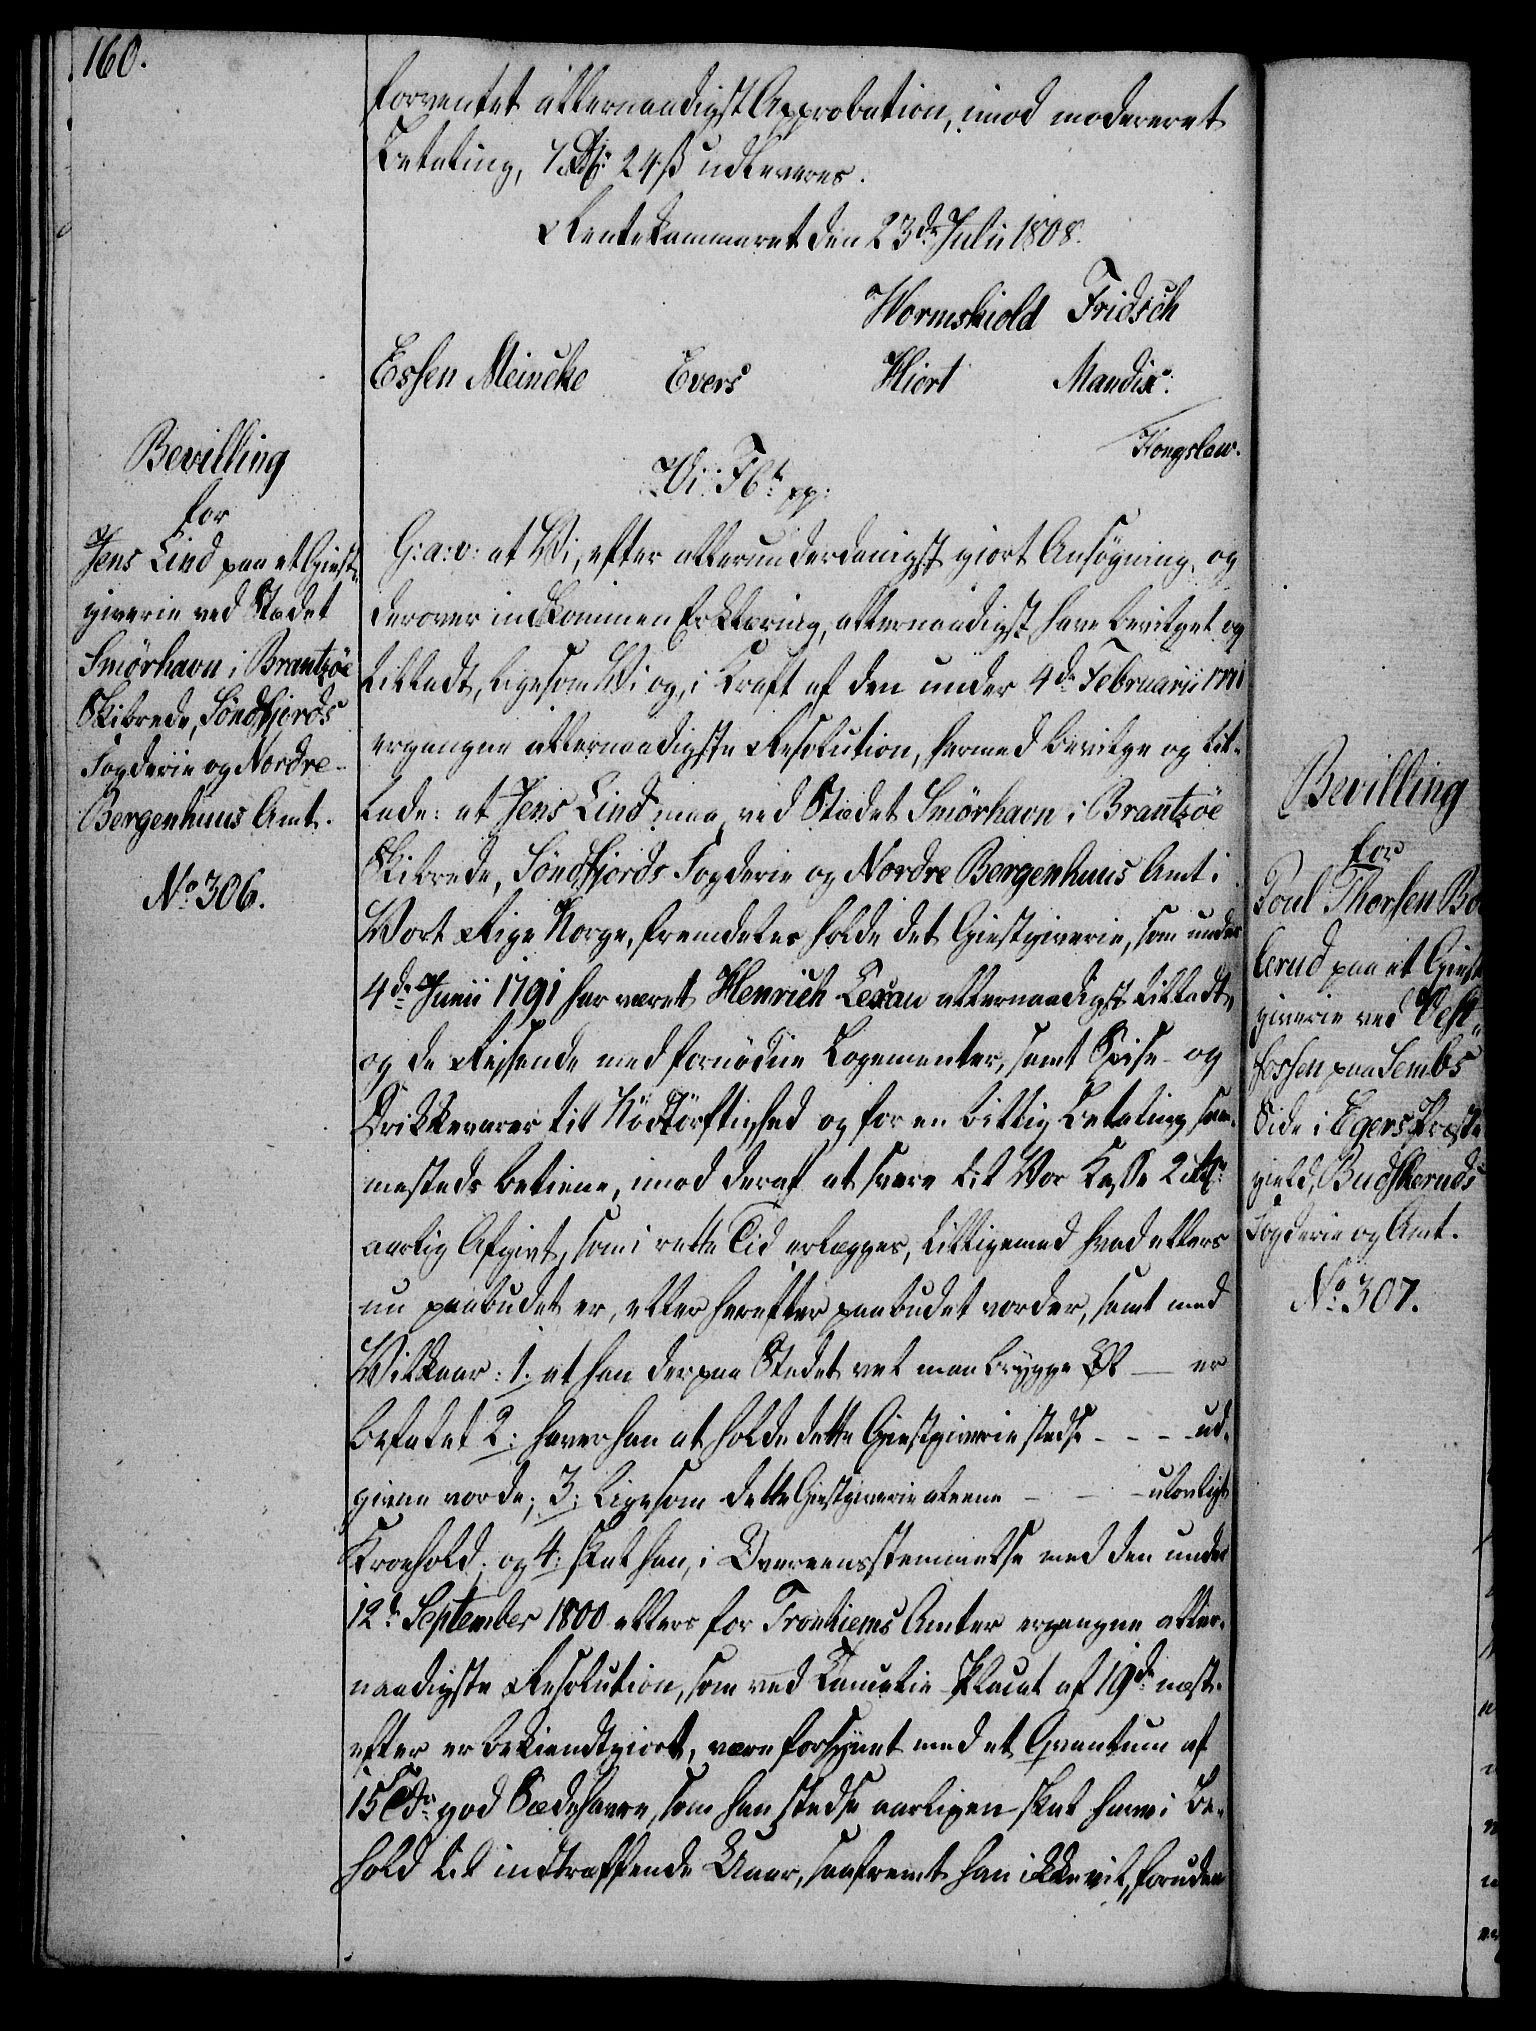 160.
forventet allernaadigst Approbation, imod modereret
Betaling, 7 Rdr 24 ß udleveres.
Rentekammeret den 23de Julii 1808.
Wormskiold Fridsch
Essen Meincke Evers Hiort Mandix.
Kongslew.
Bevilling
for
Jens Lind paa et Giest-
giverie ved Stædet
Smörhavn i Brantzöe
Skibrede, Söndfiords
Fogderie og Nordre-
Bergenhuus Amt.
No. 306.
Vi: F 6te pp:
G: a: v: at Vi, efter allerunderdanigst giort Ansögning, og
derover indkommen Erklæring, allernaadigst have bevilget og
tilladt, ligesom Vi og, i Kraft af den under 4de Februarii 1771
ergangne allernaadigste Resolution, hermed bevilge og til-
lade: at Jens Lind maa, ved Stædet Smörhavn i Brantzöe
Skibrede, Söndfjords Fogderie og Nordre Bergenhuus Amt i
Vort Rige Norge, fremdeles holde det Giestgiverie, som under
4de Junii 1791 har været Henrich Lexau allernaadigst tilladt,
og de Reisende med fornödne Logementer, samt Spise- og
Drikkevarer til Nödtörftighed og for en billig Betaling sam-
mesteds betiene, imod deraf at svare til Vor Kasse 2 Rdr
aarlig Afgivt, som i rette Tid erlægges, tilligemed hvad ellers
nu paabudet er, eller herefter paabudet vorder, samt med
Vilkaar: 1. at han der paa Stedet vel maa brygge Öl — er
befalet 2: haver han at holde dette Giestgiverie stedse - - - - ud-
givne vorde; 3: ligesom dette Giestgiverie alleene - - - ulovligt
Kroehold; og 4: skal han, i Overeensstemmelse med den under
12te September 1800 ellers for Tronhiems Amter ergangne aller-
naadigste Resolution, som ved Cancelie-Placat af 19de næst-
efter er bekiendtgiort, være forsynet med et Qvantum af
15 Tdr god Sædehavre, som han stedse aarligen skal have i Be-
hold til indtræffende Uaar, saafremt han ikke vil, foruden
Bevilling
for
Poul Thorsen Bo
lerud paa et Giest
giverie ved Vest-
fossen paa Sembs
Side i Egers Præste
gield, Budskeruds
Fogderie og Amt.
No. 307.